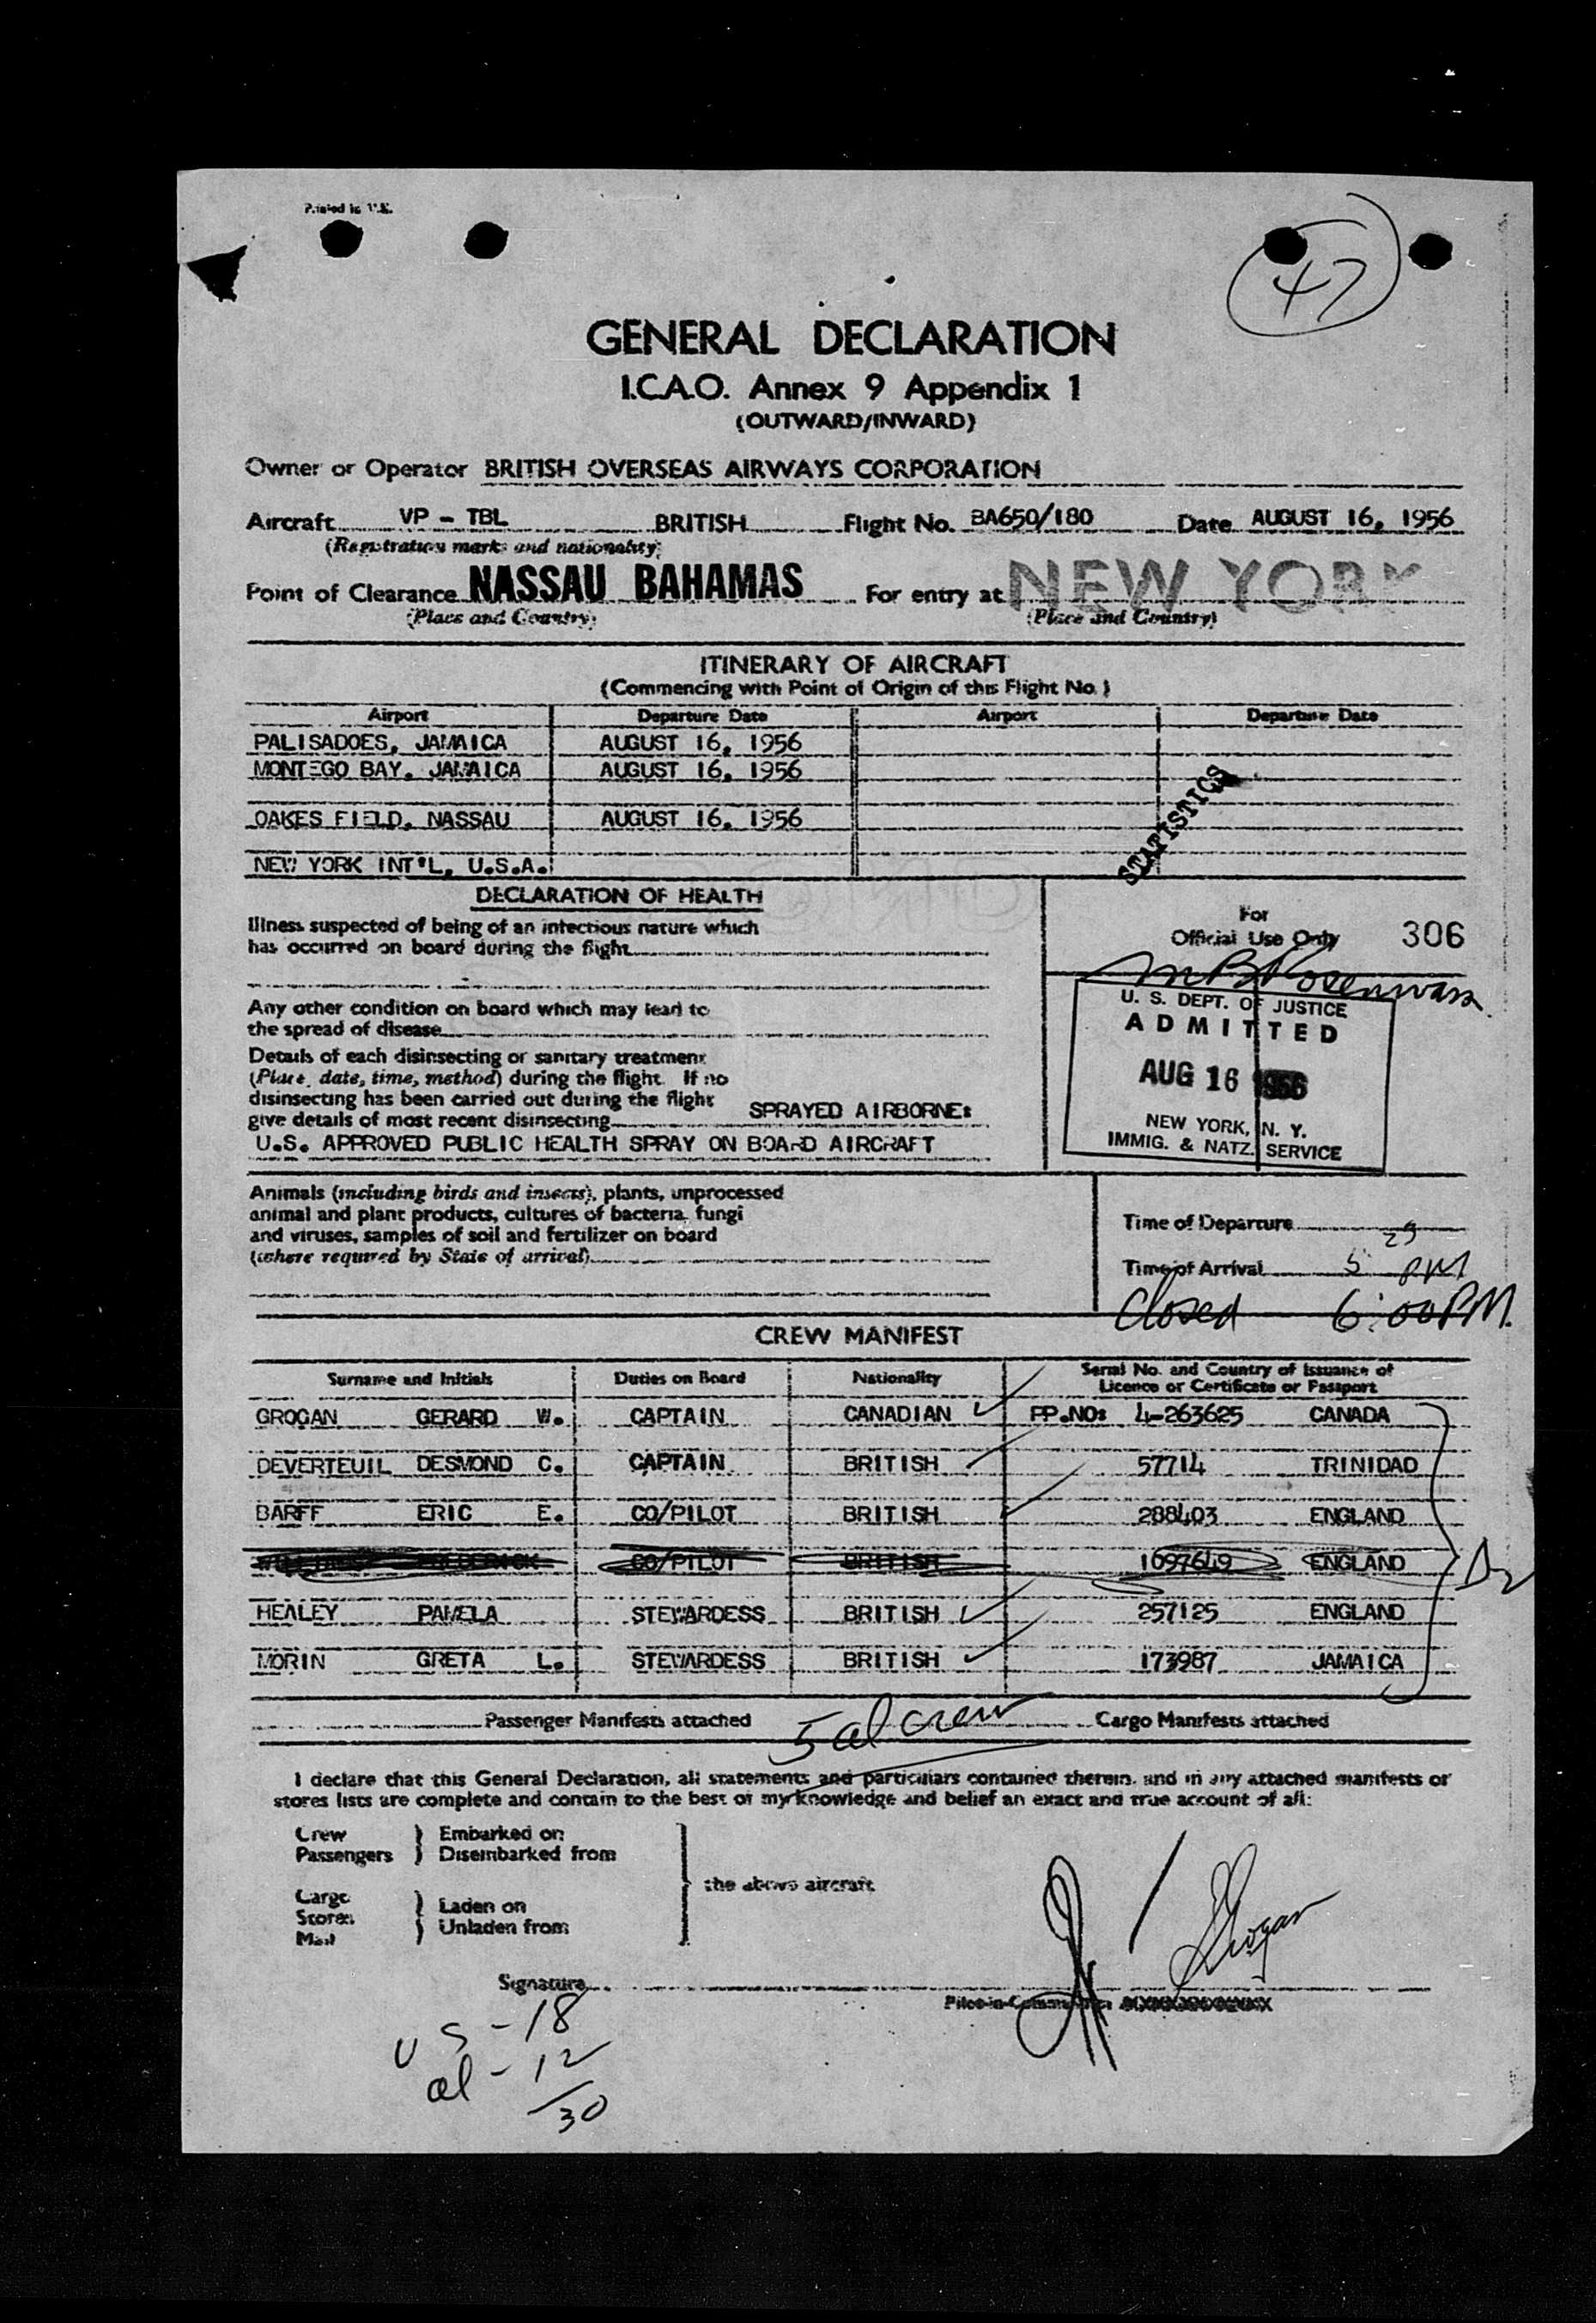 Printed in U.K.
47
GENERAL DECLARATION
I.C.A.O. Annex 9 Appendix 1
(OUTWARD/INWARD)
Owner or Operator BRITISH OVERSEAS AIRWAYS CORPORATION
Aircraft VP - TBL BRITISH Flight No. BA650/180 Date AUGUST 16, 1956
(Registration marks and nationality)
Point of Clearance NASSAU BAHAMAS For entry at NEW YORK
(Place and Country) (Place and Country)
ITINERARY OF AIRCRAFT
(Commencing with Point of Origin of this Flight No.)
Airport Departure Date Airport Departure Date
PALISADOES, JAMAICA AUGUST 16, 1956
MONTEGO BAY, JAMAICA AUGUST 16, 1956
STATISTICS
OAKES FIELD, NASSAU AUGUST 16, 1956
NEW YORK INT'L, U.S.A.
DECLARATION OF HEALTH
Illness suspected of being of an infectious nature which
has occurred on board during the flight
Any other condition on board which may lead to
the spread of disease
Details of each disinsecting or sanitary treatment
(Place, date, time, method) during the flight. If no
disinsecting has been carried out during the flight
give details of most recent disinsecting SPRAYED AIRBORNE:
U.S. APPROVED PUBLIC HEALTH SPRAY ON BOARD AIRCRAFT
For
Official Use Only 306
U. S. DEPT. OF JUSTICE
ADMITTED
AUG 16 1956
NEW YORK, N. Y.
IMMIG. & NATZ. SERVICE
Animals (including birds and insects), plants, unprocessed
animal and plant products, cultures of bacteria, fungi
and viruses, samples of soil and fertilizer on board
(where required by State of arrival)
Time of Departure
Time of Arrival 5 25 PM
Closed 6:00 PM.
CREW MANIFEST
Surname and Initials Duties on Board Nationality Serial No. and Country of Issuance of
Licence or Certificate or Passport
GROGAN GERARD W. CAPTAIN CANADIAN PP.NO: 4-263625 CANADA
DEVERTEUIL DESMOND C. CAPTAIN BRITISH 57714 TRINIDAD
BARFF ERIC E. CO/PILOT BRITISH 288403 ENGLAND
FREDERICK CO/PILOT BRITISH 1097649 ENGLAND
HEALEY PAMELA STEWARDESS BRITISH 257125 ENGLAND
MORIN GRETA L. STEWARDESS BRITISH 173987 JAMAICA
D2
Passenger Manifests attached 5 al crew Cargo Manifests attached
I declare that this General Declaration, all statements and particulars contained therein, and in any attached manifests or
stores lists are complete and contain to the best of my knowledge and belief an exact and true account of all:
Crew } Embarked on
Passengers } Disembarked from
the above aircraft
Cargo } Laden on
Stores
Mail } Unladen from
Signature Grogan
Pilot-in-Command
US - 18
al - 12
30